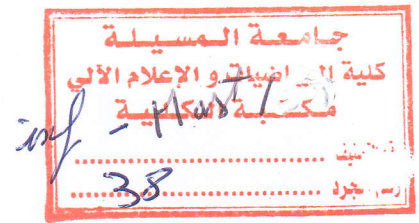 جامعة المسيلة
كلية الرياضيات و الإعلام الآلي
مكتبة الكلية
inf - Mast /
........................
38
رقم الجرد ........................